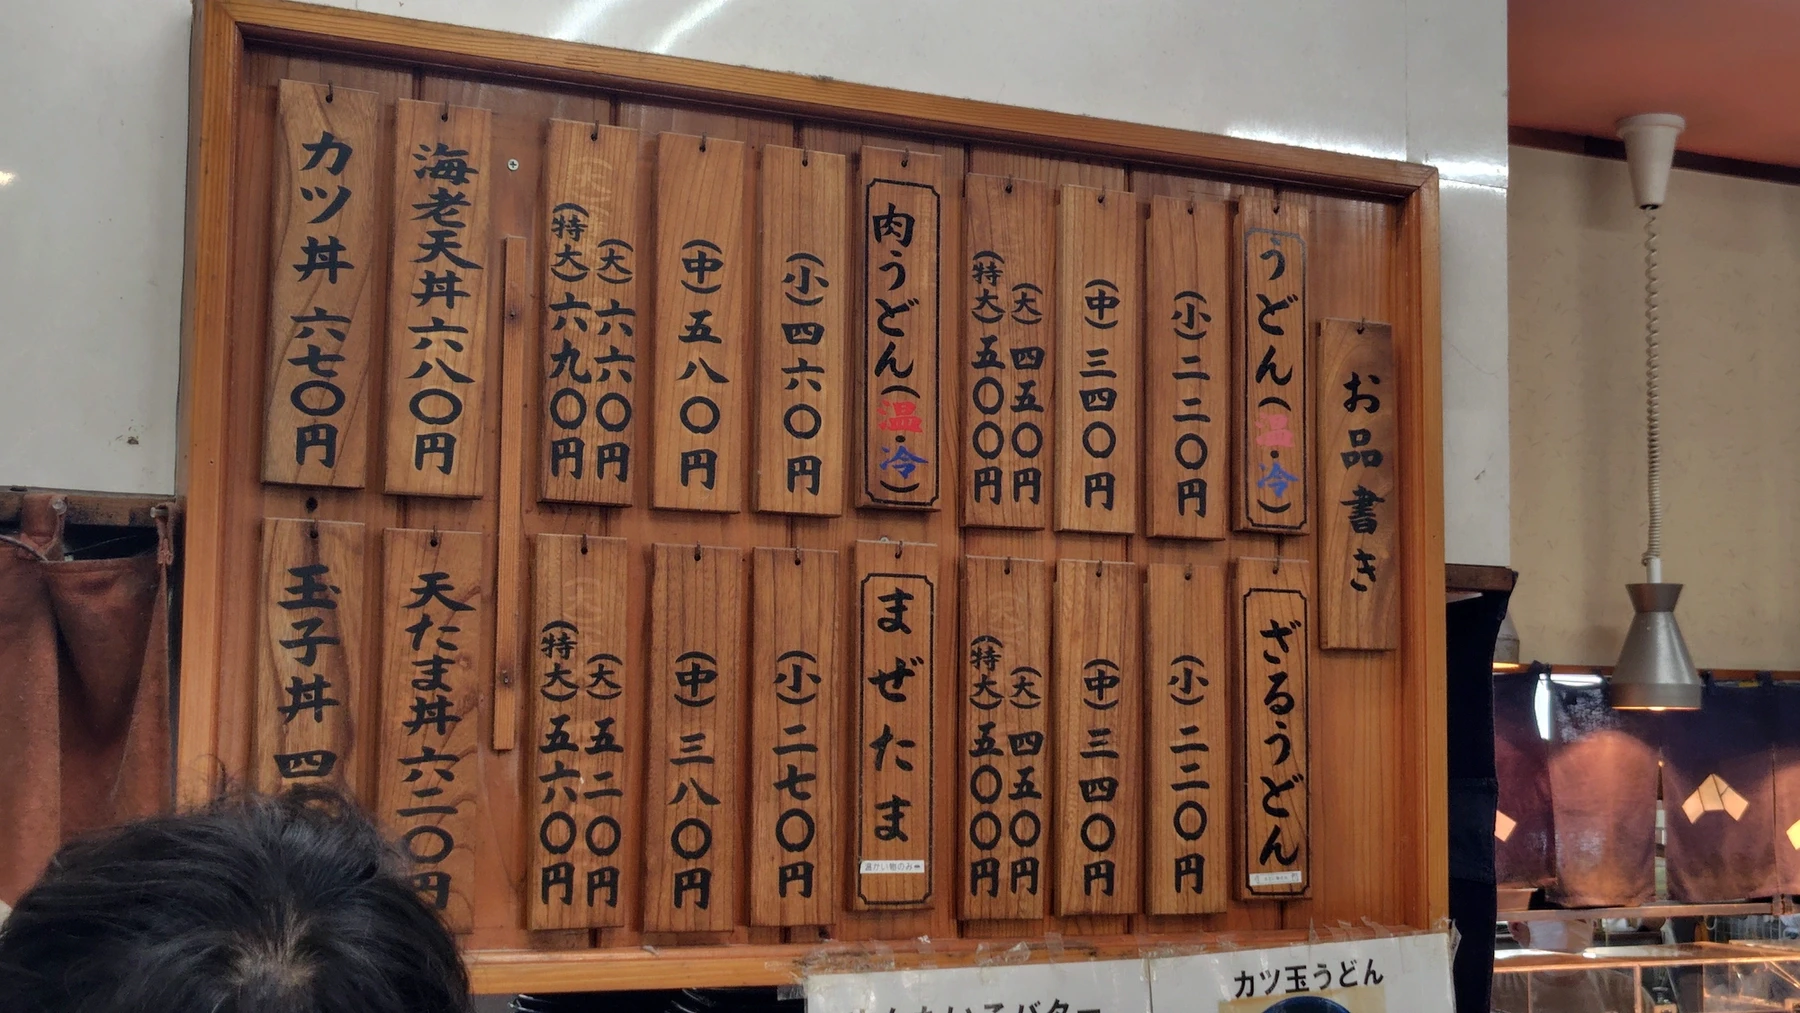 お品書き
うどん(温・冷)
(小)二二〇円
(中)三四〇円
(大)四五〇円
(特大)五〇〇円
肉うどん(温・冷)
(小)四六〇円
(中)五八〇円
(大)六六〇円
(特大)六九〇円
海老天丼六八〇円
カツ丼 六七〇円
ざるうどん
(小)二二〇円
(中)三四〇円
(大)四五〇円
(特大)五〇〇円
まぜたま
温かい物のみ
(小)二七〇円
(中)三八〇円
(大)五二〇円
(特大)五六〇円
天たま丼六二〇円
玉子丼 四
カツ玉うどん
バター